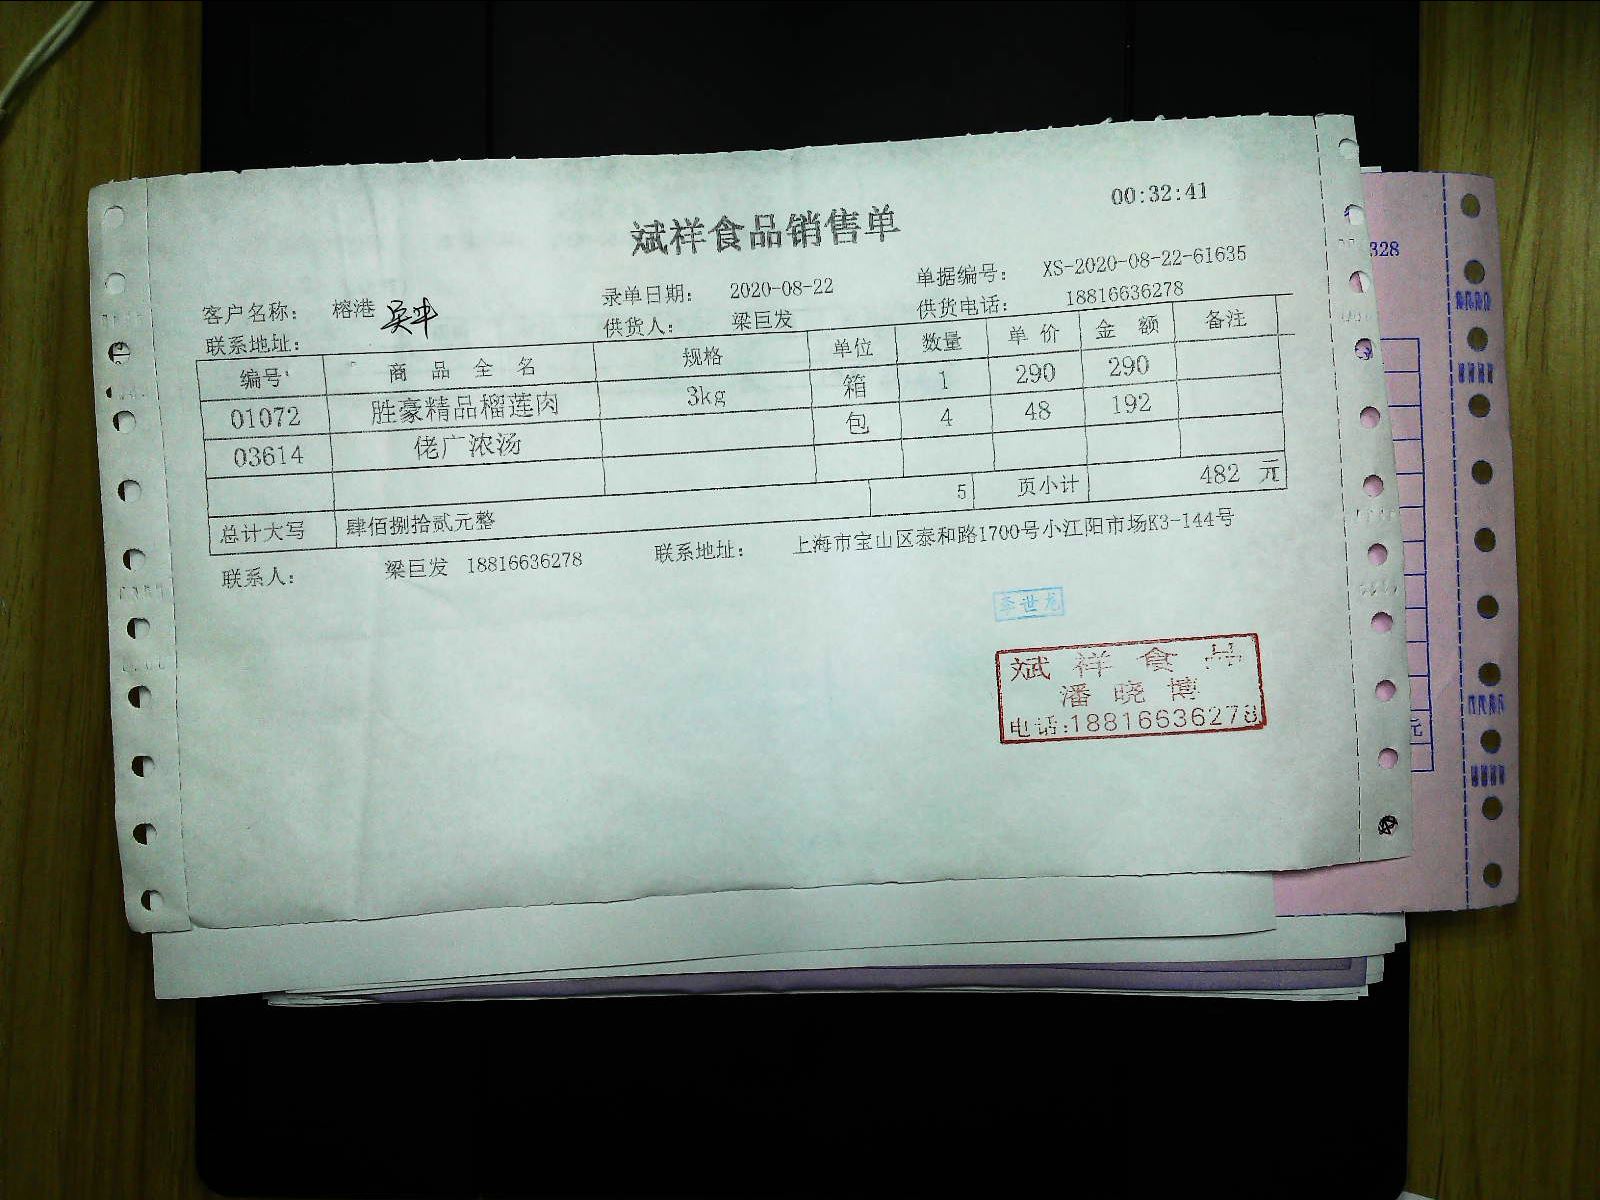 00:32:41
斌祥食品销售单
录单日期： 2020-08-22 单据编号： XS-2020-08-22-61635
客户名称： 榕港 供货人： 梁巨发 供货电话： 18816636278
联系地址：
编号 商 品 全 名 规格 单位 数量 单 价 金 额 备注
01072 胜豪精品榴莲肉 3kg 箱 1 290 290
03614 佬广浓汤 包 4 48 192
5 页小计 482 元
总计大写 肆佰捌拾贰元整
联系人： 梁巨发 18816636278 联系地址： 上海市宝山区泰和路1700号小江阳市场K3-144号
李世龙
斌 祥 食 品
潘 晓 博
电话:18816636278
328
元